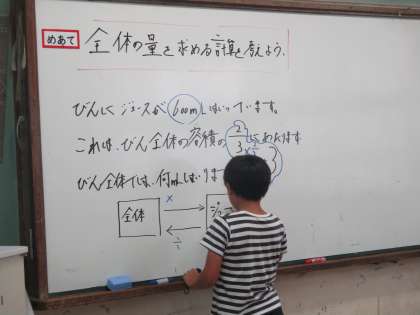 めあて 全体の量を求める計算を考えよう。
びんにジュースが600mLはいっています。
これは、びん全体の容積の2/3にあたります
びん全体では、何mLはいりま
全体
×
ジュ